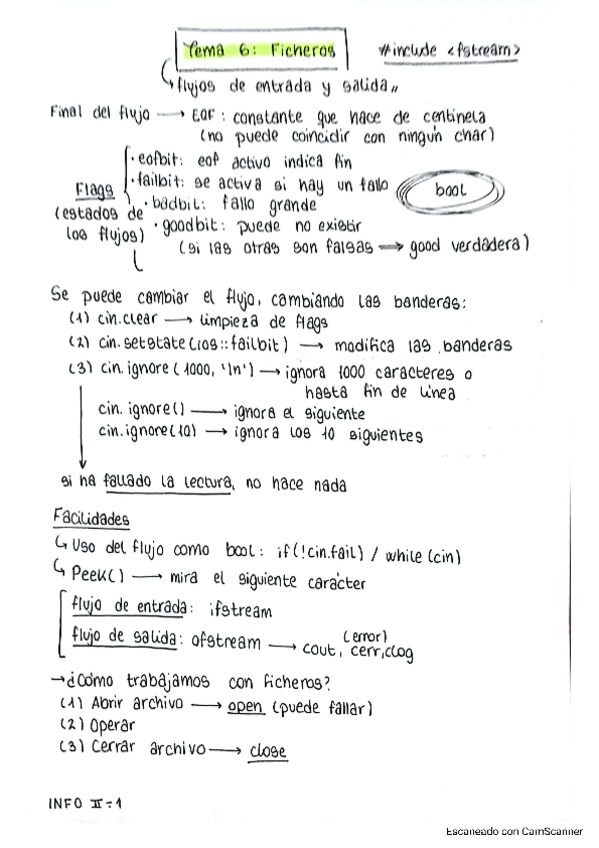 Tema 6: Ficheros
#include <fstream>
↳ flujos de entrada y salida
Final del flujo → EOF: constante que hace de centinela
(no puede coincidir con ningún char)
· eofbit: eof activo indica fin
· failbit: se activa si hay un fallo
bool
Flags
· badbit: fallo grande
(estados de los flujos)
· goodbit: puede no existir
(si las otras son falsas → good verdadera)
Se puede cambiar el flujo, cambiando las banderas:
(1) cin.clear → limpieza de flags
(2) cin.setstate(ios::failbit) → modifica las banderas
(3) cin.ignore(1000, '\n') → ignora 1000 caracteres o
hasta fin de línea
cin.ignore() → ignora el siguiente
cin.ignore(10) → ignora los 10 siguientes
si ha fallado la lectura, no hace nada
Facilidades
↳ Uso del flujo como bool: if(!cin.fail) / while(cin)
↳ Peek() → mira el siguiente carácter
flujo de entrada: ifstream
(error)
flujo de salida: ofstream → cout, cerr, clog
→ ¿Cómo trabajamos con ficheros?
(1) Abrir archivo → open (puede fallar)
(2) Operar
(3) Cerrar archivo → close
INFO II-1
Escaneado con CamScanner